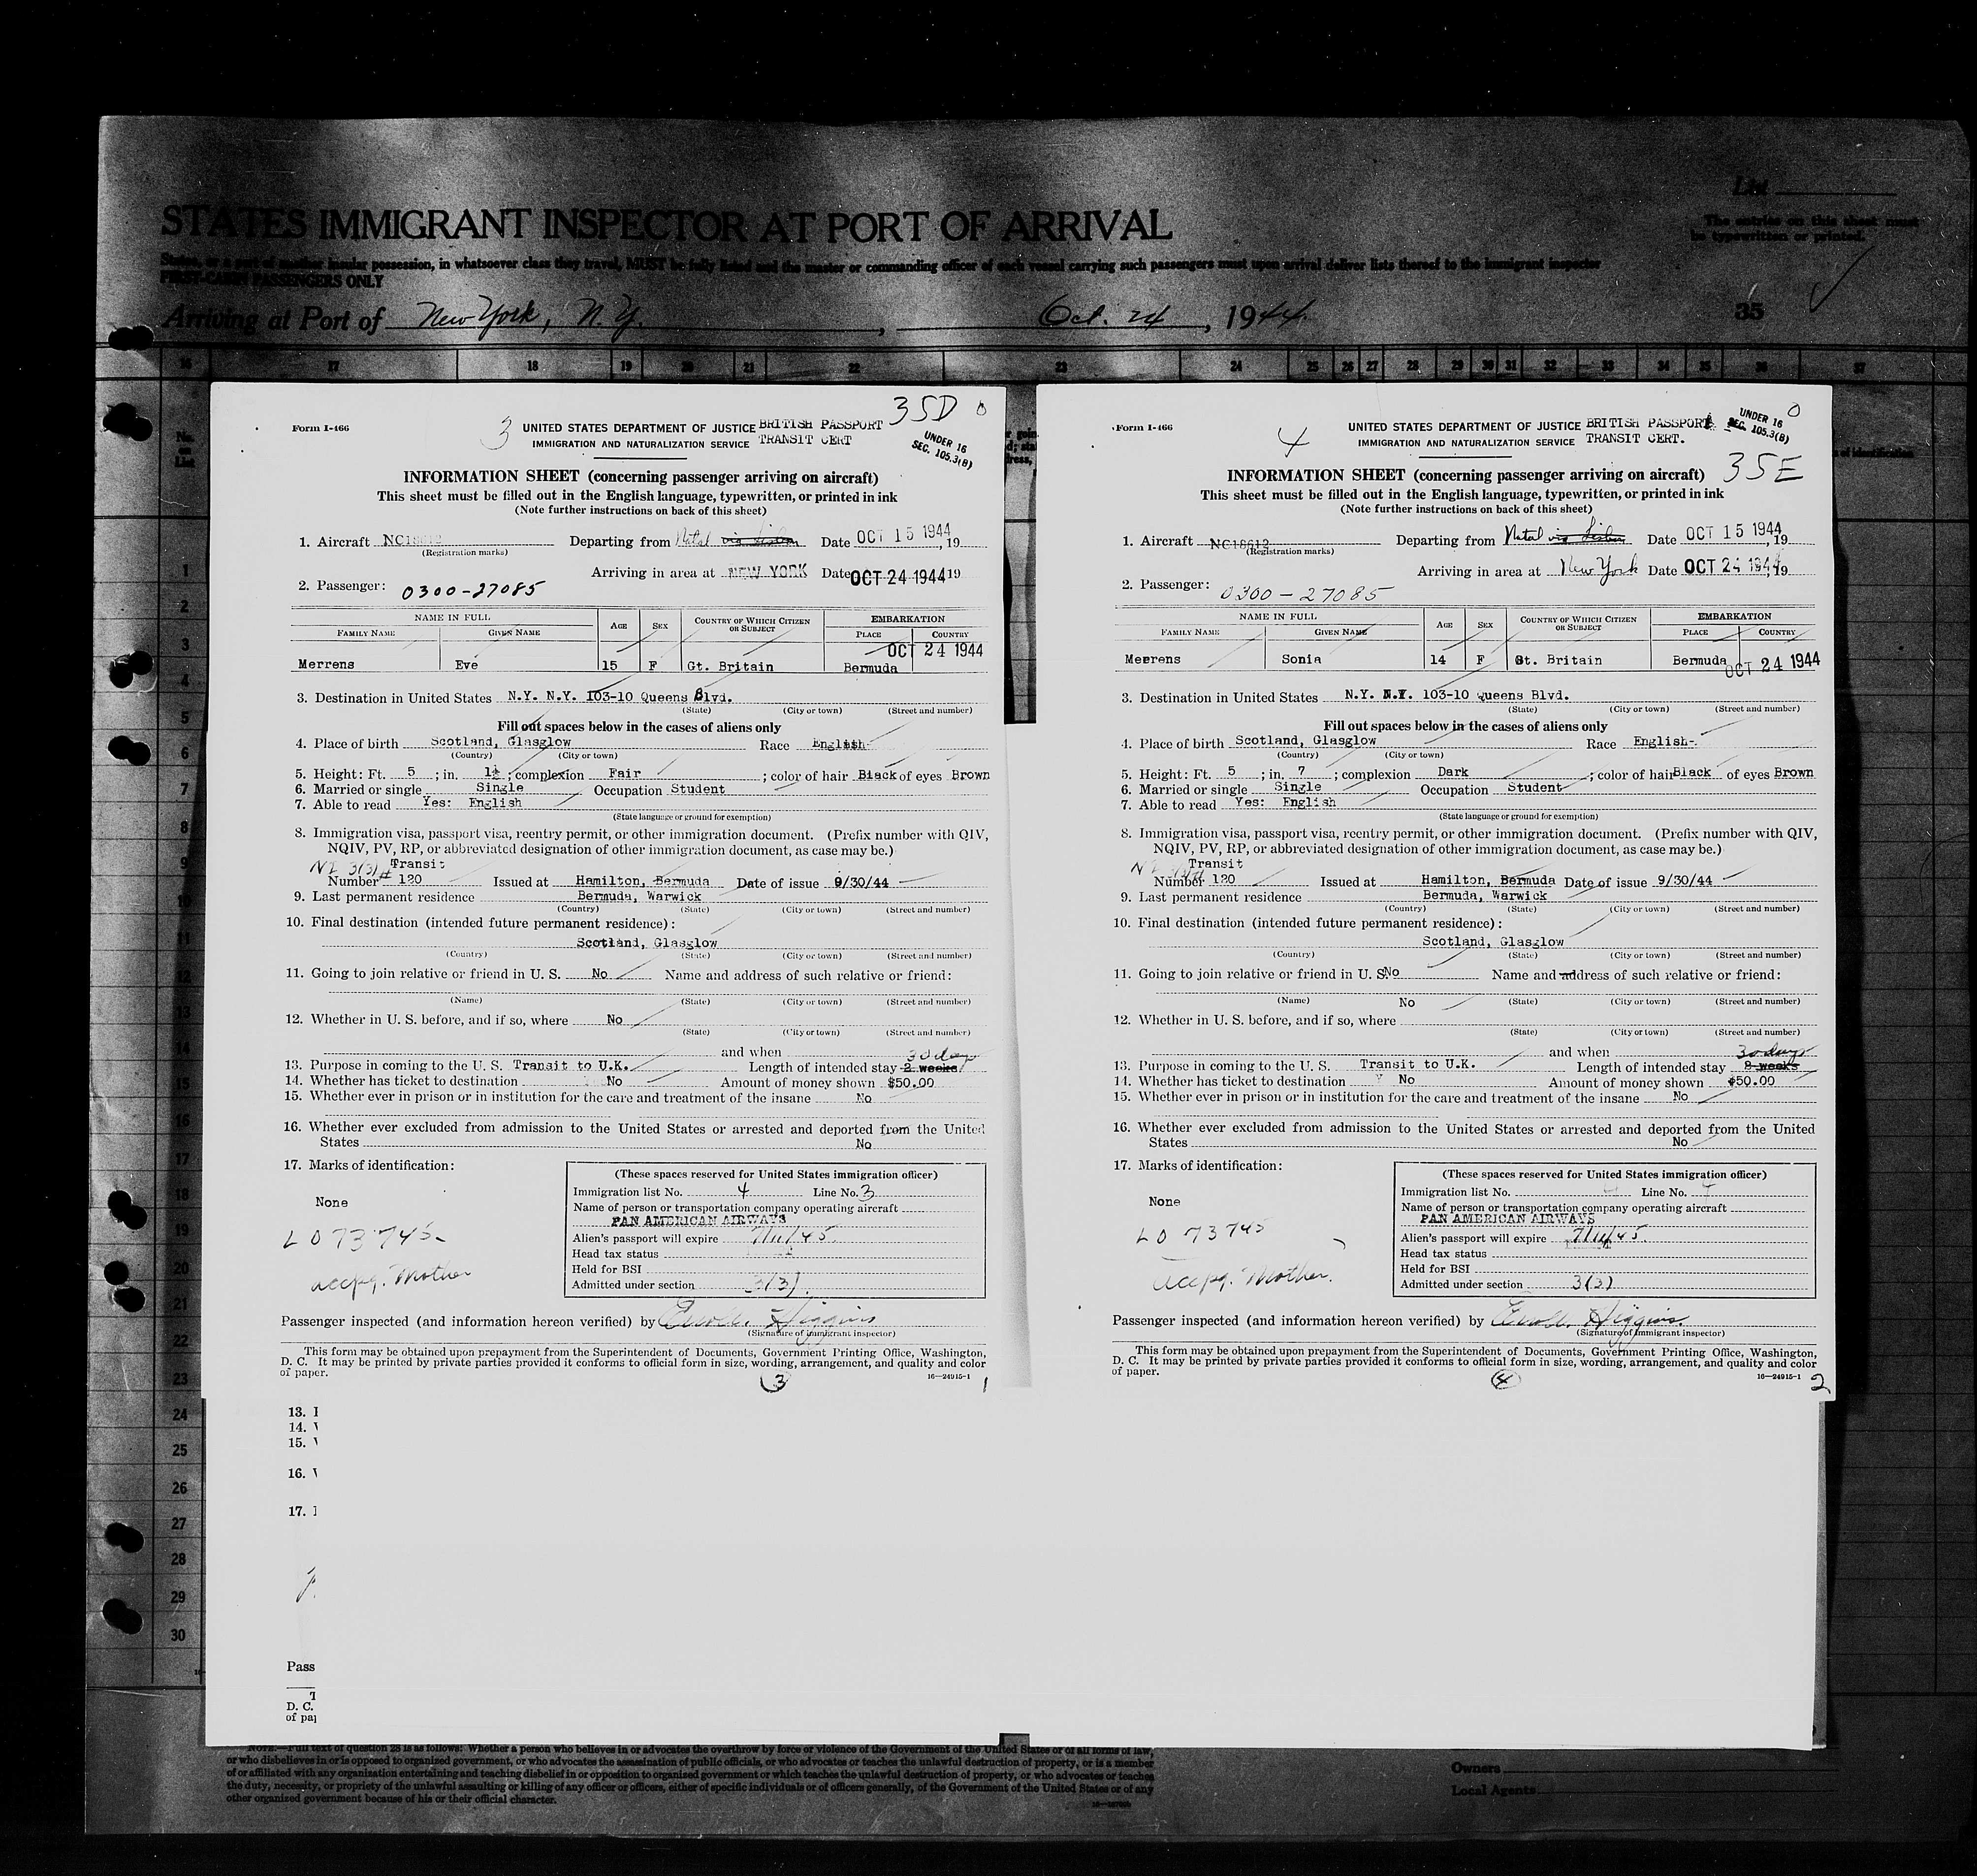 List
STATES IMMIGRANT INSPECTOR AT PORT OF ARRIVAL
The entries on this sheet must
be typewritten or printed.
States, or a port of another insular possession, in whatsoever class they travel, MUST be fully listed and the master or commanding officer of each vessel carrying such passengers must upon arrival deliver lists thereof to the immigrant inspector
FIRST-CABIN PASSENGERS ONLY
Arriving at Port of New York, N.Y. , Oct. 24 , 1944
35
16 17 18 19 20 21 22 23 24 25 26 27 28 29 30 31 32 33 34 35 36 37
No.
on
List
35D 0
Form I-466
3
UNITED STATES DEPARTMENT OF JUSTICE BRITISH PASSPORT
IMMIGRATION AND NATURALIZATION SERVICE TRANSIT CERT
UNDER 16
SEC. 105.3(B)
INFORMATION SHEET (concerning passenger arriving on aircraft)
This sheet must be filled out in the English language, typewritten, or printed in ink
(Note further instructions on back of this sheet)
1. Aircraft NC18612 Departing from Natal via Lisbon Date OCT 15 1944, 19
(Registration marks)
Arriving in area at NEW YORK Date OCT 24 1944 19
2. Passenger: 0300-27085
NAME IN FULL AGE SEX COUNTRY OF WHICH CITIZEN OR SUBJECT EMBARKATION
FAMILY NAME GIVEN NAME PLACE COUNTRY
OCT 24 1944
Merrens Eve 15 F Gt. Britain Bermuda
3. Destination in United States N.Y. N.Y. 103-10 Queens Blvd.
(State) (City or town) (Street and number)
Fill out spaces below in the cases of aliens only
4. Place of birth Scotland, Glasglow Race English-
(Country) (City or town)
5. Height: Ft. 5 ; in. 1½ ; complexion Fair ; color of hair Black of eyes Brown
6. Married or single Single Occupation Student
7. Able to read Yes: English
(State language or ground for exemption)
8. Immigration visa, passport visa, reentry permit, or other immigration document. (Prefix number with QIV,
NQIV, PV, RP, or abbreviated designation of other immigration document, as case may be.)
NI 3(3) # Transit
Number 120 Issued at Hamilton, Bermuda Date of issue 9/30/44
9. Last permanent residence Bermuda, Warwick
(Country) (State) (City or town) (Street and number)
10. Final destination (intended future permanent residence):
Scotland, Glasglow
(Country) (State) (City or town) (Street and number)
11. Going to join relative or friend in U. S. No Name and address of such relative or friend:
(Name) (State) (City or town) (Street and number)
12. Whether in U. S. before, and if so, where No
(State) (City or town) (Street and number)
and when 30 days
13. Purpose in coming to the U. S. Transit to U.K. Length of intended stay 2 weeks
14. Whether has ticket to destination No Amount of money shown $50.00
15. Whether ever in prison or in institution for the care and treatment of the insane No
16. Whether ever excluded from admission to the United States or arrested and deported from the United
States No
17. Marks of identification:
None
LO 73745
accpg. Mother
(These spaces reserved for United States immigration officer)
Immigration list No. 4 Line No. 3
Name of person or transportation company operating aircraft
PAN AMERICAN AIRWAYS
Alien's passport will expire 7/11/45.
Head tax status
Held for BSI
Admitted under section 3(3)
Passenger inspected (and information hereon verified) by Higgins
(Signature of immigrant inspector)
This form may be obtained upon prepayment from the Superintendent of Documents, Government Printing Office, Washington,
D. C. It may be printed by private parties provided it conforms to official form in size, wording, arrangement, and quality and color
of paper.
3
16—24915-1
1
0
Form I-466
4
UNITED STATES DEPARTMENT OF JUSTICE BRITISH PASSPORT
IMMIGRATION AND NATURALIZATION SERVICE TRANSIT CERT.
UNDER 16
SEC. 105.3(B)
INFORMATION SHEET (concerning passenger arriving on aircraft) 35E
This sheet must be filled out in the English language, typewritten, or printed in ink
(Note further instructions on back of this sheet)
1. Aircraft NC18612 Departing from Natal via Lisbon Date OCT 15 1944, 19
(Registration marks)
Arriving in area at New York Date OCT 24 1944, 19
2. Passenger: 0300-27085
NAME IN FULL AGE SEX COUNTRY OF WHICH CITIZEN OR SUBJECT EMBARKATION
FAMILY NAME GIVEN NAME PLACE COUNTRY
Merrens Sonia 14 F Gt. Britain Bermuda
OCT 24 1944
3. Destination in United States N.Y. N.Y. 103-10 Queens Blvd.
(State) (City or town) (Street and number)
Fill out spaces below in the cases of aliens only
4. Place of birth Scotland, Glasglow Race English-
(Country) (City or town)
5. Height: Ft. 5 ; in. 7 ; complexion Dark ; color of hair Black of eyes Brown
6. Married or single Single Occupation Student
7. Able to read Yes: English
(State language or ground for exemption)
8. Immigration visa, passport visa, reentry permit, or other immigration document. (Prefix number with QIV,
NQIV, PV, RP, or abbreviated designation of other immigration document, as case may be.)
Transit
Number 120 Issued at Hamilton, Bermuda Date of issue 9/30/44
9. Last permanent residence Bermuda, Warwick
(Country) (State) (City or town) (Street and number)
10. Final destination (intended future permanent residence):
Scotland, Glasglow
(Country) (State) (City or town) (Street and number)
11. Going to join relative or friend in U. S. No Name and address of such relative or friend:
(Name) (State) (City or town) (Street and number)
No
12. Whether in U. S. before, and if so, where
(State) (City or town) (Street and number)
and when 30 days
13. Purpose in coming to the U. S. Transit to U.K. Length of intended stay 2 weeks
14. Whether has ticket to destination No Amount of money shown $50.00
15. Whether ever in prison or in institution for the care and treatment of the insane No
16. Whether ever excluded from admission to the United States or arrested and deported from the United
States No
17. Marks of identification:
None
LO 73745
accpg. Mother.
(These spaces reserved for United States immigration officer)
Immigration list No. Line No.
Name of person or transportation company operating aircraft
PAN AMERICAN AIRWAYS
Alien's passport will expire 7/11/45.
Head tax status
Held for BSI
Admitted under section 3(3)
Passenger inspected (and information hereon verified) by Higgins
(Signature of immigrant inspector)
This form may be obtained upon prepayment from the Superintendent of Documents, Government Printing Office, Washington,
D. C. It may be printed by private parties provided it conforms to official form in size, wording, arrangement, and quality and color
of paper.
4
16—24915-1
2
1
2
3
4
5
6
7
8
9
10
11
12
13
14
15
16
17
18
19
20
21
22
23
24
25
26
27
28
29
30
13.
14.
15.
16.
17.
Pass
D. C.
of pa
NOTE.—Full text of question 28 is as follows: Whether a person who believes in or advocates the overthrow by force or violence of the Government of the United States or of all forms of law,
or who disbelieves in or is opposed to organized government, or who advocates the assassination of public officials, or who advocates or teaches the unlawful destruction of property, or is a member
of or affiliated with any organization entertaining and teaching disbelief in or opposition to organized government or which teaches the unlawful destruction of property, or who advocates or teaches
the duty, necessity, or propriety of the unlawful assaulting or killing of any officer or officers, either of specific individuals or of officers generally, of the Government of the United States or of any
other organized government because of his or their official character.
Owners
Local Agents